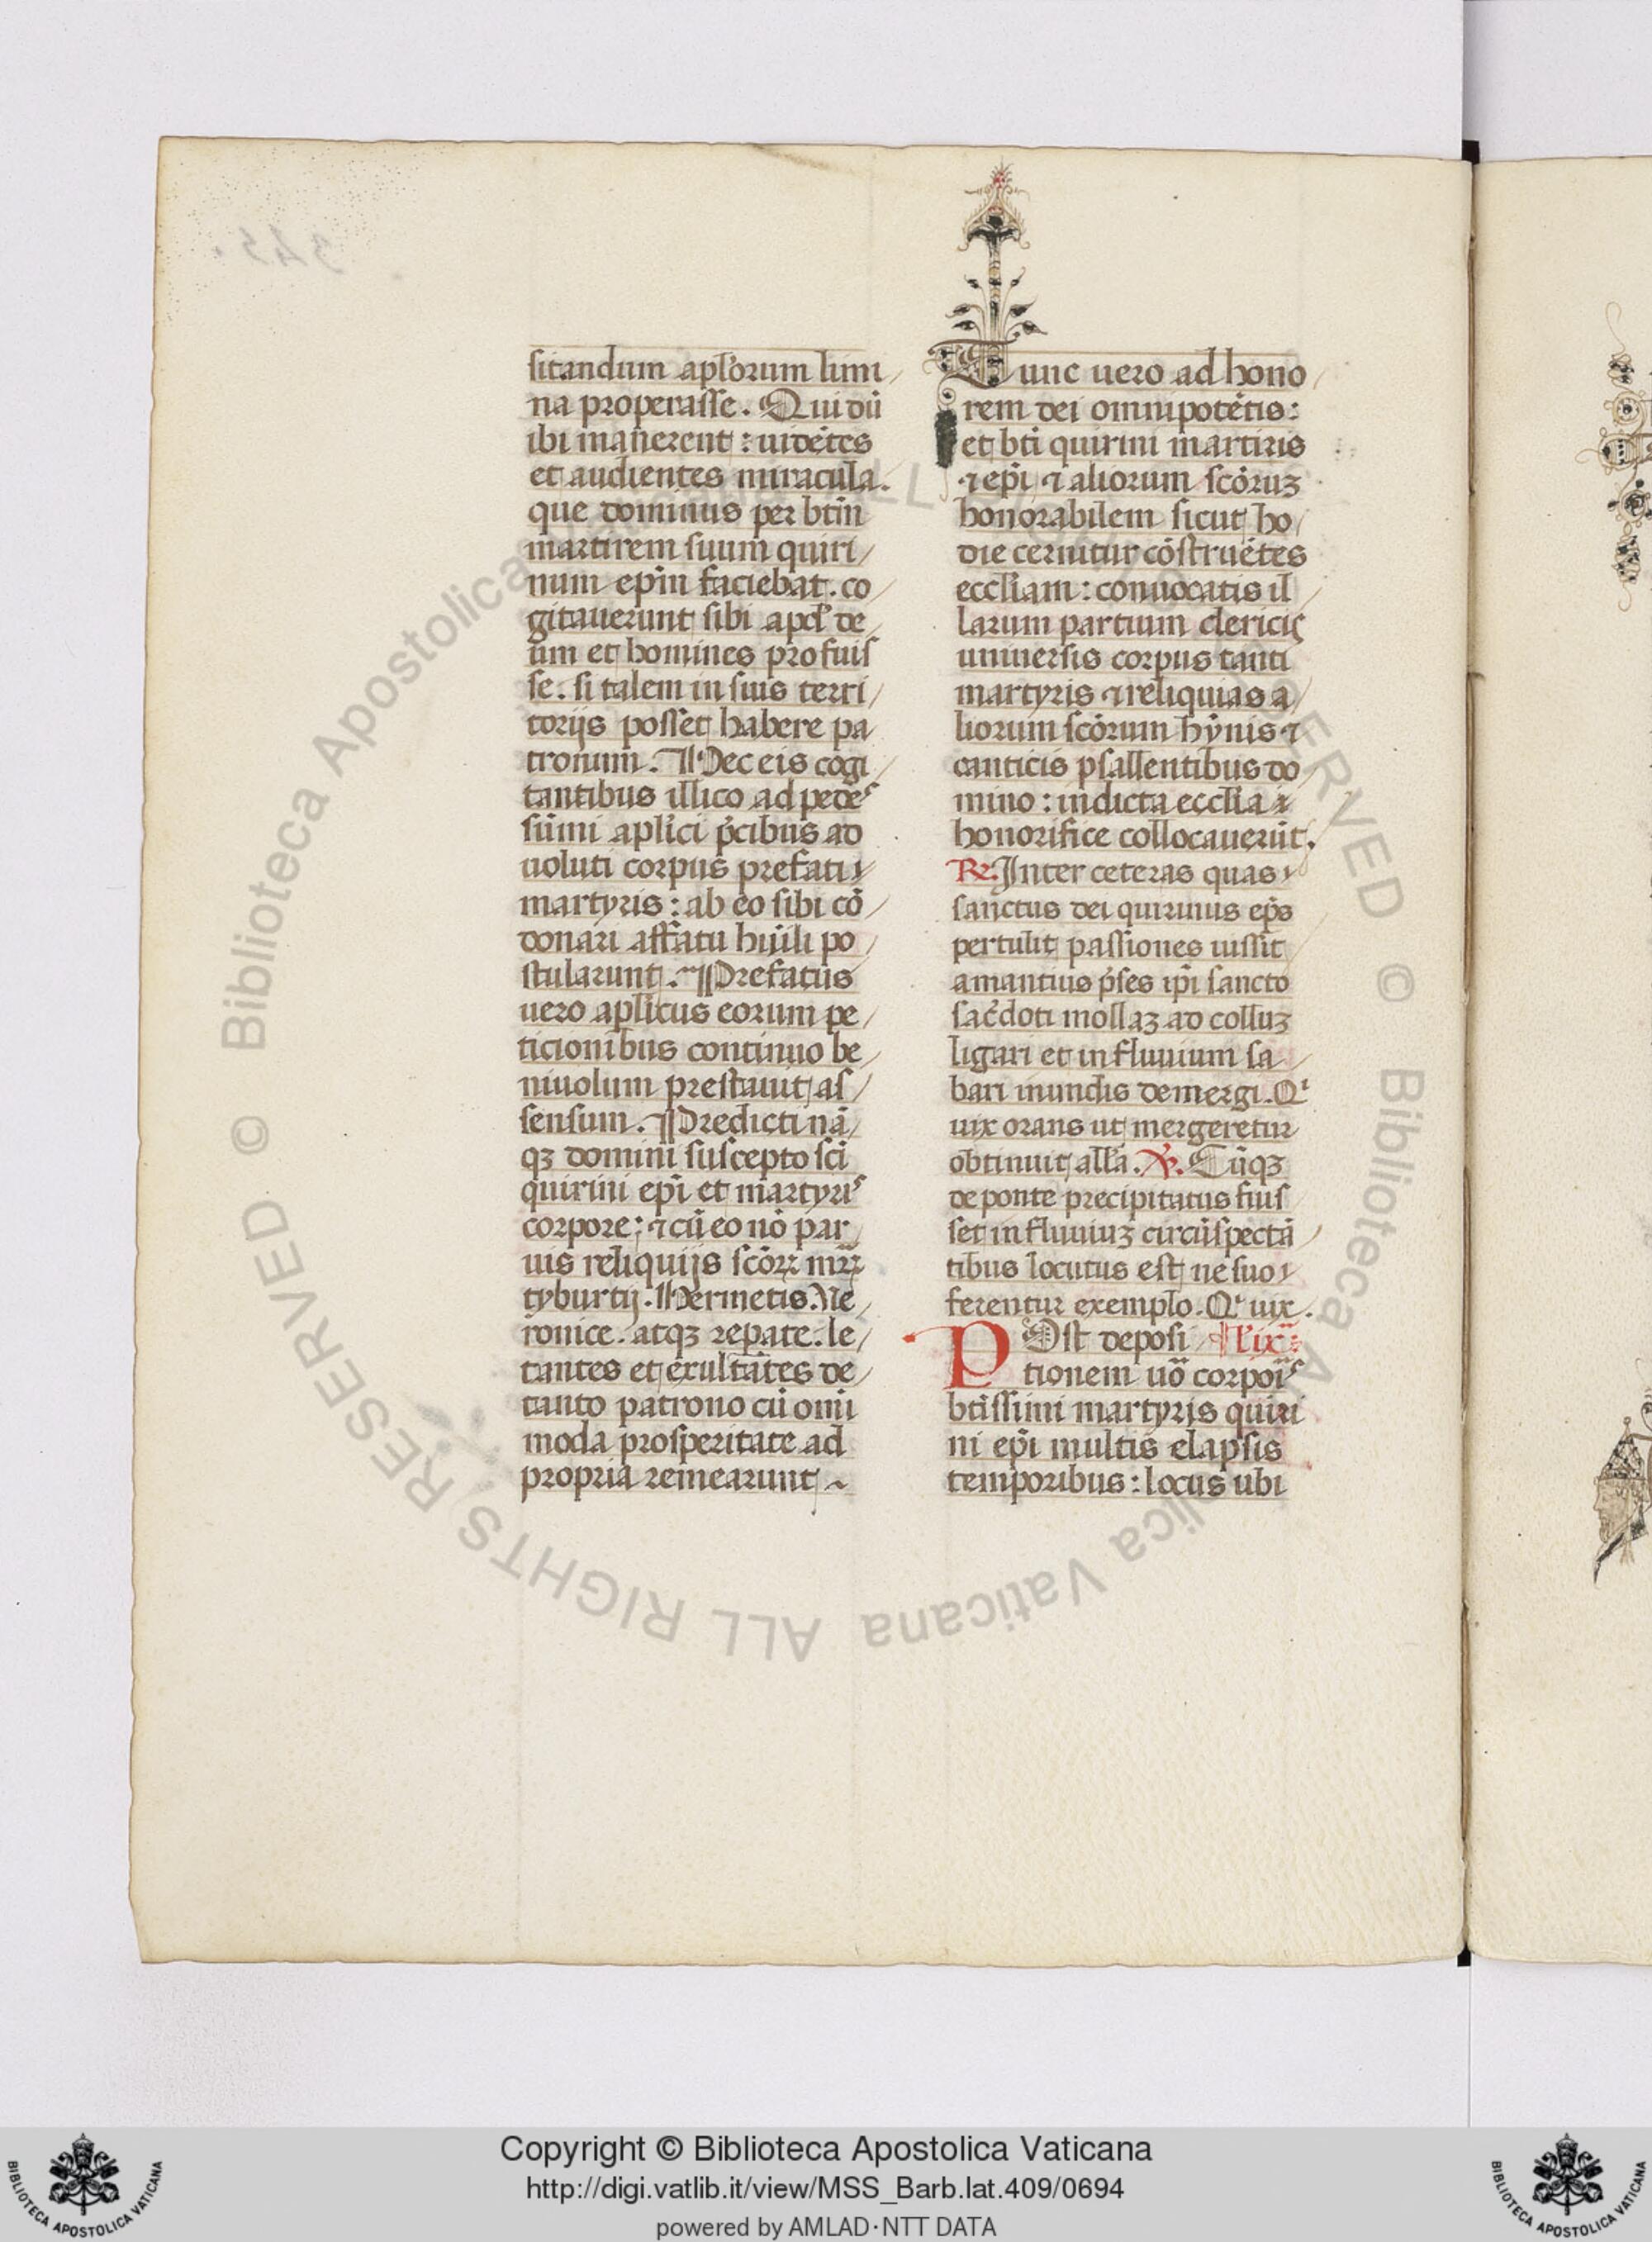 sitandum apl'orum limi
na properasse. Qui dū
ibi manerent: uidētes
et audientes miracula.
que dominus per btm̄
martirem suum quiri
num ep̄m faciebat. co
gitauerunt sibi apd' de
um et homines profuis
se. si talem in suis terri
torijs posset habere pa
tronum. Hec eis cogi
tantibus illico ad pedes
sūmi apl'ici p̄cibus ad
uoluti corpus prefati
martyris: ab eo sibi cō
donari affatu hūili po
stularunt. Prefatus
uero aplicus eorum pe
ticionibus continuo be
niuolum prestauit as
sensum. Predicti nā
qꝫ domini suscepto sc̄i
quirini ep̄i et martyris
corpore: ⁊ cū eo nō par
uis reliquijs scōꝝ mr̄ꝝ
tyburtij. Hermetis. Ne
ronice. atqꝫ repate. le
tantes et exultātes de
tanto patrono cū omi
moda prosperitate ad
propria remearunt ~
Tunc uero ad hono
rem dei omnipotētis:
et bt̄i quirini martiris
⁊ ep̄i ⁊ aliorum scōruꝫ
honorabilem sicut ho
die cernitur cōstruētes
eccl'iam: conuocatis il
larum partium clericis
uniuersis corpus tanti
martyris ⁊ reliquias a
liorum scōrum hȳnis ⁊
canticis psallentibus do
mino: in dicta eccl'ia
honorifice collocauerūt.
R. Inter ceteras quas
sanctus dei quirinus ep̄s
pertulit passiones iussit
amantius p̄ses ip̄i sancto
sac̄doti mollaꝫ ad colluꝫ
ligari et in fluuium sa
bari inundis demergi. Qi
uix orans ut mergeretur
obtinuit all'a. V. Cūqꝫ
de ponte precipitatus fuis
set in fluuiuꝫ circūspectā
tibus locutus est ne suo
ferentur exemplo. Qi uix.
Post deposi l' ix
tionem uō corporis
btissimi martyris quiri
ni ep̄i multis elapsis
temporibus: locus ubi
© Biblioteca Apostolica Vaticana ALL RIGHTS RESERVED
Copyright © Biblioteca Apostolica Vaticana
http://digi.vatlib.it/view/MSS_Barb.lat.409/0694
powered by AMLAD·NTT DATA
BIBLIOTECA APOSTOLICA VATICANA
BIBLIOTECA APOSTOLICA VATICANA